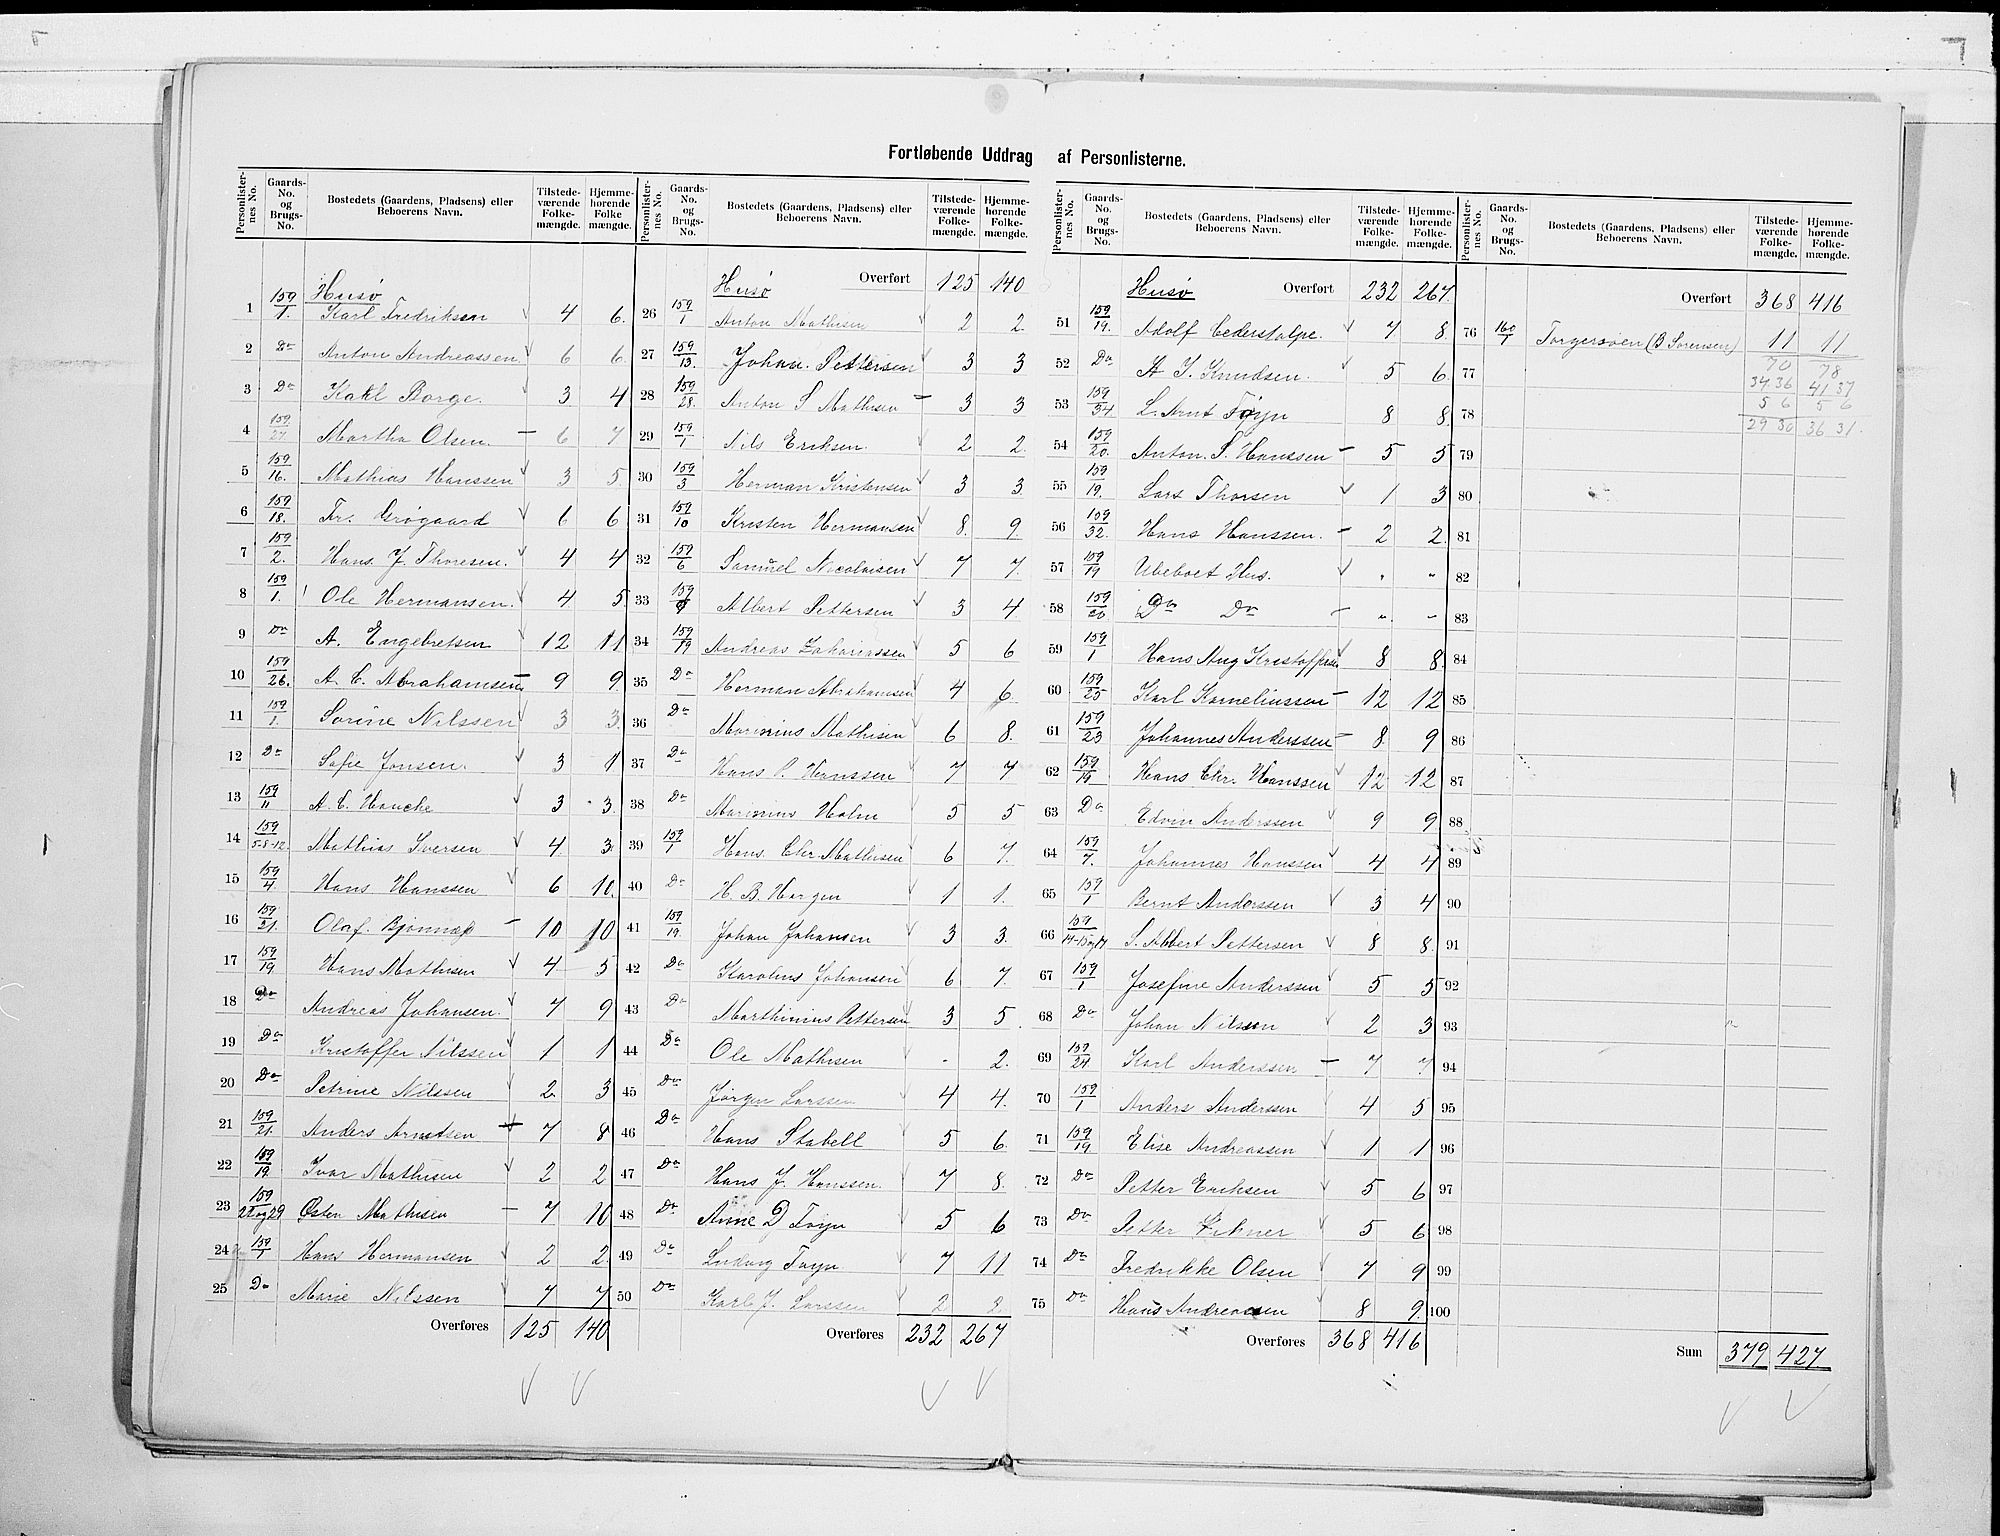 Fortløbende Uddrag af Personlisterne.
Personlisternes No. Gaards-No. og Brugs-No. Bostedets (Gaardens, Pladsens) eller Beboerens Navn. Tilstedeværende Folkemængde. Hjemmehørende Folkemængde.
Husø
1 159/1. Karl Fredriksen 4 6.
2 Do Anton Andreassen 6 6.
3 Do Karl Borge. 3 4
4 159/27. Martha Olsen. 6 7
5 159/16. Mathias Hanssen 3 5.
6 159/18. Fr. Grøgaard 6 6
7 159/2. Hans J. Thoresen. 4 4
8 159/1. Ole Hermansen. 4 5
9 Do A. Engebretsen 12 11
10 159/26. A. C. Abrahamsen 9 9.
11 159/1. Sorine Nilssen 3 3.
12 Do Sofie Jonsen. 3 1
13 159/11 A. C. Hauche 3 3.
14 159/5-8-12. Mathias Iversen 4 3.
15 159/4 Hans Hanssen 6 10.
16 159/21. Olaf. Bjønnæs 10 10
17 159/19 Hans Mathisen 4 5
18 Do Andreas Johansen. 7 9
19 Do Kristoffer Nilssen 1 1
20 Do Petrine Nilssen 2 3
21 159/21. Anders Arntsen 7 8
22 159/19 Ivar Mathisen 2 2
23 159/22 og 29 Østen Mathisen 7 10
24 159/1 Hans Hermansen 2 2.
25 Do Marie Nilssen 7 7
Overføres 125 140
Husø Overført 125 140
26 159/1 Anton Mathisen 2 2.
27 159/13. Johan. Pettersen 3 3
28 159/28. Anton S Mathisen 3 3
29 159/1 Nils Eriksen. 2 2.
30 159/3 Herman Kristensen 3 3.
31 159/10 Kristen Hermansen 8. 9.
32 159/6 Samuel Nicolaisen 7 7.
33 159/9 Albert Pettersen 3 4
34 159/19 Andreas Zahariassen 5 6
35 Do Herman Abrahamsen 4 6.
36 Do Marinius Mathisen 6 8.
37 Do Hans P. Hanssen 7 7
38 Do Marinius Holm 5 5
39 159/1 Hans. Chr. Mathisen 6 7.
40 Do H. B. Horgen 1 1.
41 159/19. Johan Johansen 3 3.
42 Do Karolius Johansen 6 7.
43 Do Marthinius Pettersen 3 5.
44 Do Ole Mathisen - 2.
45 Do Jørgen Larssen 4 4.
46 Do Hans Stabell 5 6.
47 Do Hans J. Hanssen. 7 8.
48 Do Anne D Føyn 5 6
49 Do Ludvig Føyn 7 11
50 Do Karl J. Larssen 2 2.
Overføres 232 267
Husø Overført 232 267.
51 159/19. Adolf Cederstolpe. 7 8.
52 Do A J. Knudsen. 5 6.
53 159/34 L. Arnt Føyn 8 8.
54 159/20. Anton. S. Hanssen 5 5
55 159/19. Lars Thorsen 1 3
56 159/32. Hans Hanssen. 2 2.
57 159/19 Ubeboet Hus. " "
58 159/20 Do Do " "
59 159/1 Hans Aug Kristoffersen 8 8.
60 159/25 Karl Korneliussen 12 12
61 159/23 Johannes Anderssen 8 9
62 159/19. Hans Chr. Hanssen 12 12
63 Do Edvin Anderssen 9 9
64 159/7. Johannes Hanssen 4 4
65 159/1 Bernt Anderssen 3 4
66 159/14-15 og 17 S. Albert Pettersen 8 8.
67 159/1 Josefine Anderssen 5 5
68 Do Johan Nilsen 2 3
69 159/24. Karl Anderssen 7 7
70 159/1 Anders Anderssen 4 5
71 159/19 Elise Andreassen 1 1
72 Do Petter Eriksen 5 6
73 Do Petter 5 6.
74 Do Fredrikke Olsen 7 9
75 Do Hans Andreasen 8 9.
Overføres 368 416
Overført 368 416
76 160/1 Torgersøen (B Sørensen) 11 11
77 70 78
34 36 41 37
78 5 6 5 6
29 30 36 31.
79
80
81
82
83
84
85
86
87
88
89
90
91
92
93
94
95
96
97
98
99
100
Sum 379 427.